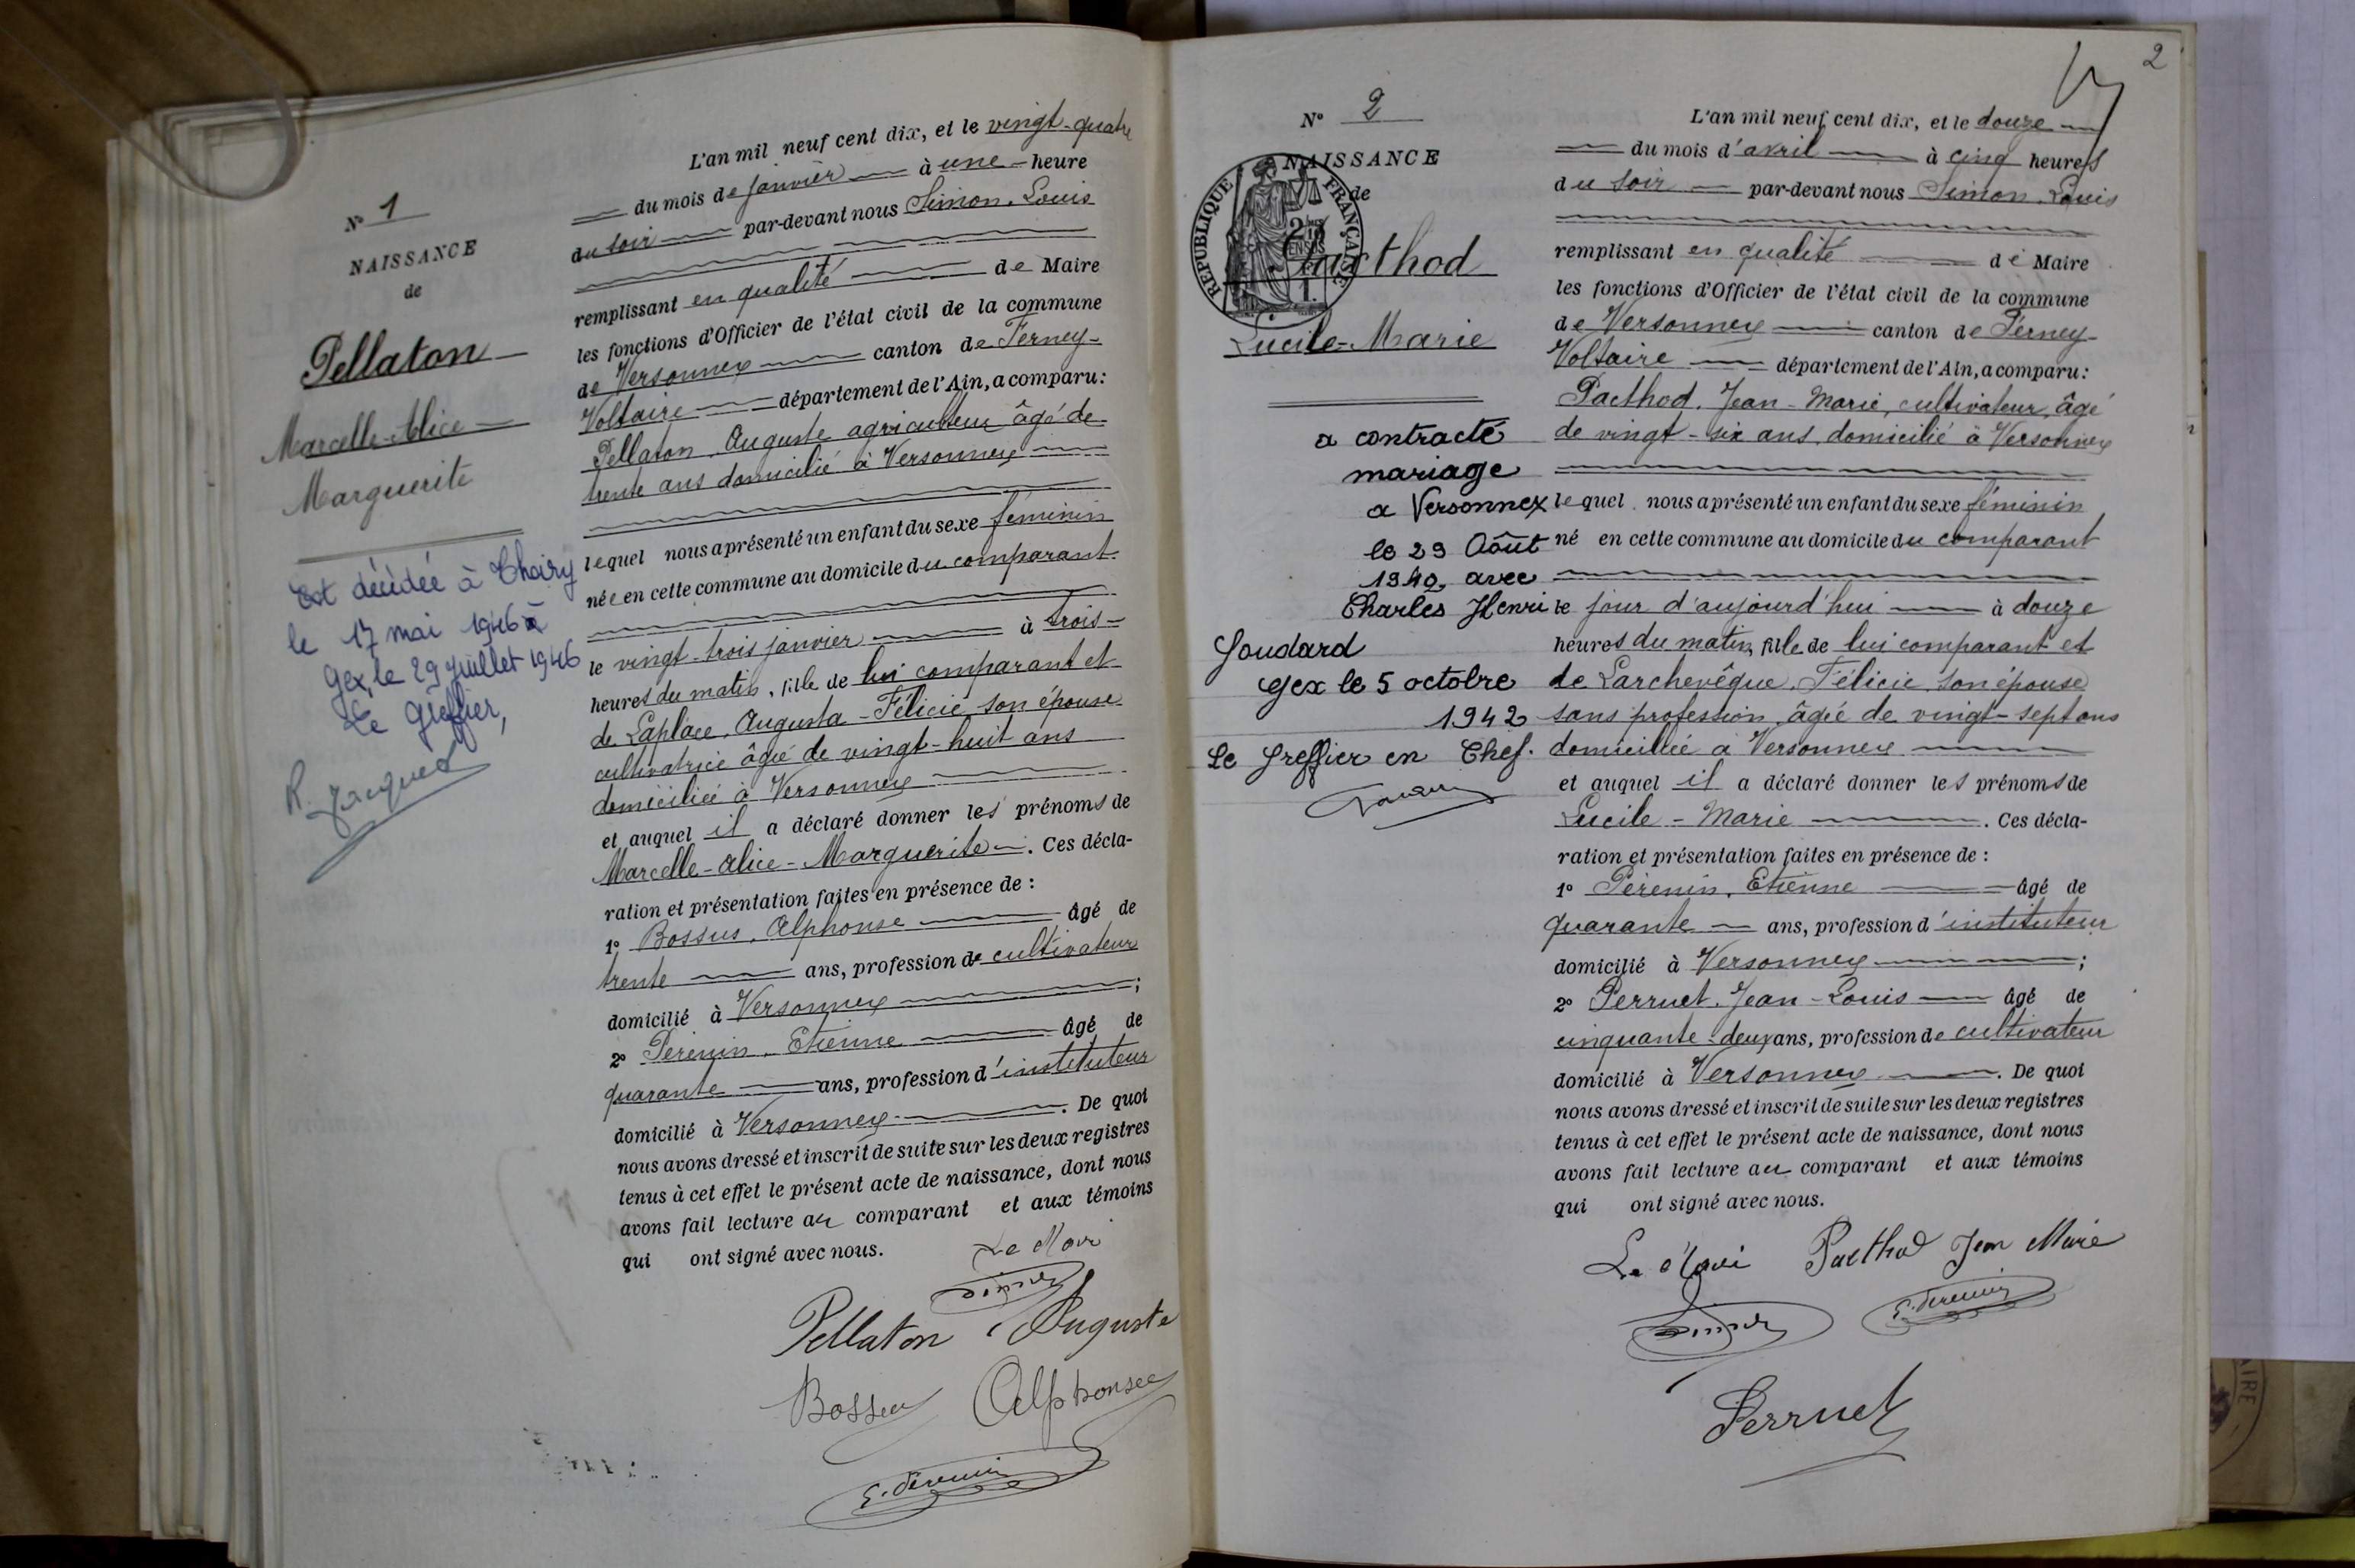 N° 1
NAISSANCE
de
Pellaton
Marcelle-Alice
Marguerite
Est décédée à Thoiry
le 17 mai 1946 à
Gex, le 29 Juillet 1946
Le Greffier,
R. Jacquet
L'an mil neuf cent dix, et le vingt-quatre
du mois de janvier à une heure
du soir par-devant nous Simon, Louis
remplissant en qualité de Maire
les fonctions d'Officier de l'état civil de la commune
de Versonnex canton de Ferney-
Voltaire département de l'Ain, a comparu:
Pellaton, Auguste agriculteur âgé de
trente ans domicilié à Versonnex
lequel nous a présenté un enfant du sexe féminin
née en cette commune au domicile du comparant
le vingt-trois janvier à trois
heures du matin, fille de lui comparant et
de Laplace, Augusta-Félicie, son épouse
cultivatrice âgée de vingt-huit ans
domiciliée à Versonnex
et auquel il a déclaré donner les prénoms de
Marcelle-Alice-Marguerite. Ces décla-
ration et présentation faites en présence de :
1° Bossus, Alphonse âgé de
trente ans, profession de cultivateur
domicilié à Versonnex ;
2° Perenin, Etienne âgé de
quarante ans, profession d'instituteur
domicilié à Versonnex. De quoi
nous avons dressé et inscrit de suite sur les deux registres
tenus à cet effet le présent acte de naissance, dont nous
avons fait lecture au comparant et aux témoins
qui ont signé avec nous.
Le Maire
Simon
Pellaton Auguste
Bossus Alphonse
E. Perenin
2
N° 2
NAISSANCE
de
RÉPUBLIQUE FRANÇAISE
Pacthod
Lucile-Marie
a contracté
mariage
a Versonnex
le 29 Août
1942, avec
Charles Henri
Goudard
Gex le 5 octobre
1942
Le Greffier en Chef.
L'an mil neuf cent dix, et le douze
du mois d'avril à cinq heures
du soir par-devant nous Simon, Louis
remplissant en qualité de Maire
les fonctions d'Officier de l'état civil de la commune
de Versonnex canton de Ferney-
Voltaire département de l'Ain, a comparu:
Pacthod, Jean-Marie, cultivateur, âgé
de vingt-six ans, domicilié à Versonnex
lequel nous a présenté un enfant du sexe féminin
né en cette commune au domicile du comparant
le jour d'aujourd'hui à douze
heures du matin, fille de lui comparant et
de Larchevêque, Félicie, son épouse
sans profession, âgée de vingt-sept ans
domiciliée à Versonnex
et auquel il a déclaré donner les prénoms de
Lucile-Marie. Ces décla-
ration et présentation faites en présence de :
1° Perenin, Etienne âgé de
quarante ans, profession d'instituteur
domicilié à Versonnex ;
2° Perruet, Jean-Louis âgé de
cinquante-deux ans, profession de cultivateur
domicilié à Versonnex. De quoi
nous avons dressé et inscrit de suite sur les deux registres
tenus à cet effet le présent acte de naissance, dont nous
avons fait lecture au comparant et aux témoins
qui ont signé avec nous.
Le Maire Pacthod Jean Marie
Simon E. Perenin
Perruet